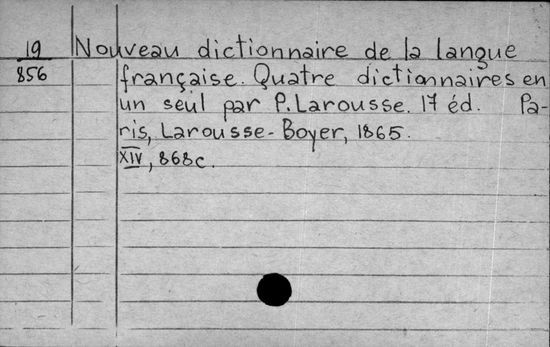 19 Nouveau dictionnaire de la langue
856 française. Quatre dictionnaires en
un seul par P. Larousse. 17 éd. Pa-
ris, Larousse-Boyer, 1865.
XIV, 868c.